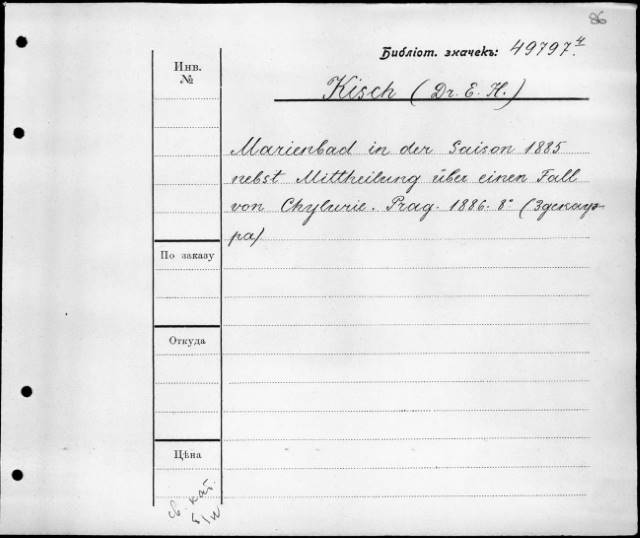 86
Библіот. значекъ: 49797 4.
Инв.
№
Kisch (Dr. E. H.)
Marienbad in der Saison 1885
nebst Mittheilung über einen Fall
von Chylurie. Prag. 1886. 8° (3 декаур-
ра)
По заказу
Откуда
Цѣна